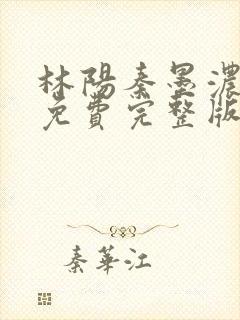 林陽秦墨濃
免費完整版
秦華江